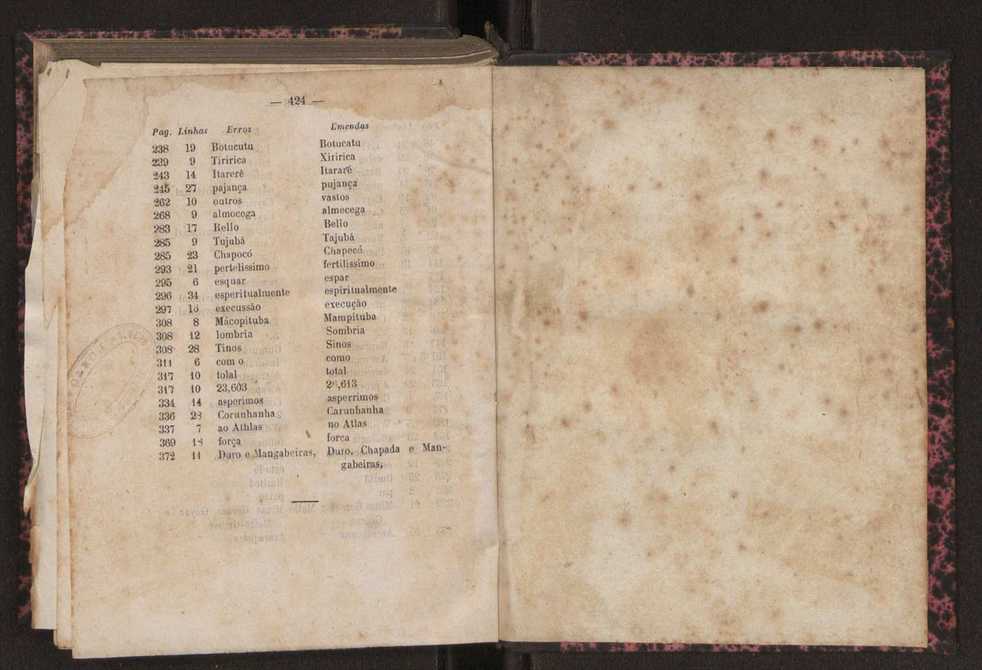 — 424 —
Pag. Linhas Erros Emendas
238 19 Botucutu Botucatu
239 9 Tiririca Xiririca
243 14 Itarerê Itararé
245 27 pajança pujança
262 10 outros vastos
268 9 almocega almecega
283 17 Rello Bello
285 9 Tujubá Tajubá
285 23 Chapocó Chapecó
293 21 pertelissimo fertilissimo
295 6 esquar espar
296 34 esperitualmente espiritualmente
297 execussão execução
308 8 Mácopituba Mampituba
308 12 lombria Sombria
308 28 Tinos Sinos
311 6 com o como
317 10 tolal total
317 10 23,603
334 14 asperimos asperrimos
336 Corunhanha Carunhanha
337 7 ao Athlas no Atlas
369 força forca
372 11 Duro e Mangabeiras, Duro, Chapada e Man-
gabeiras,